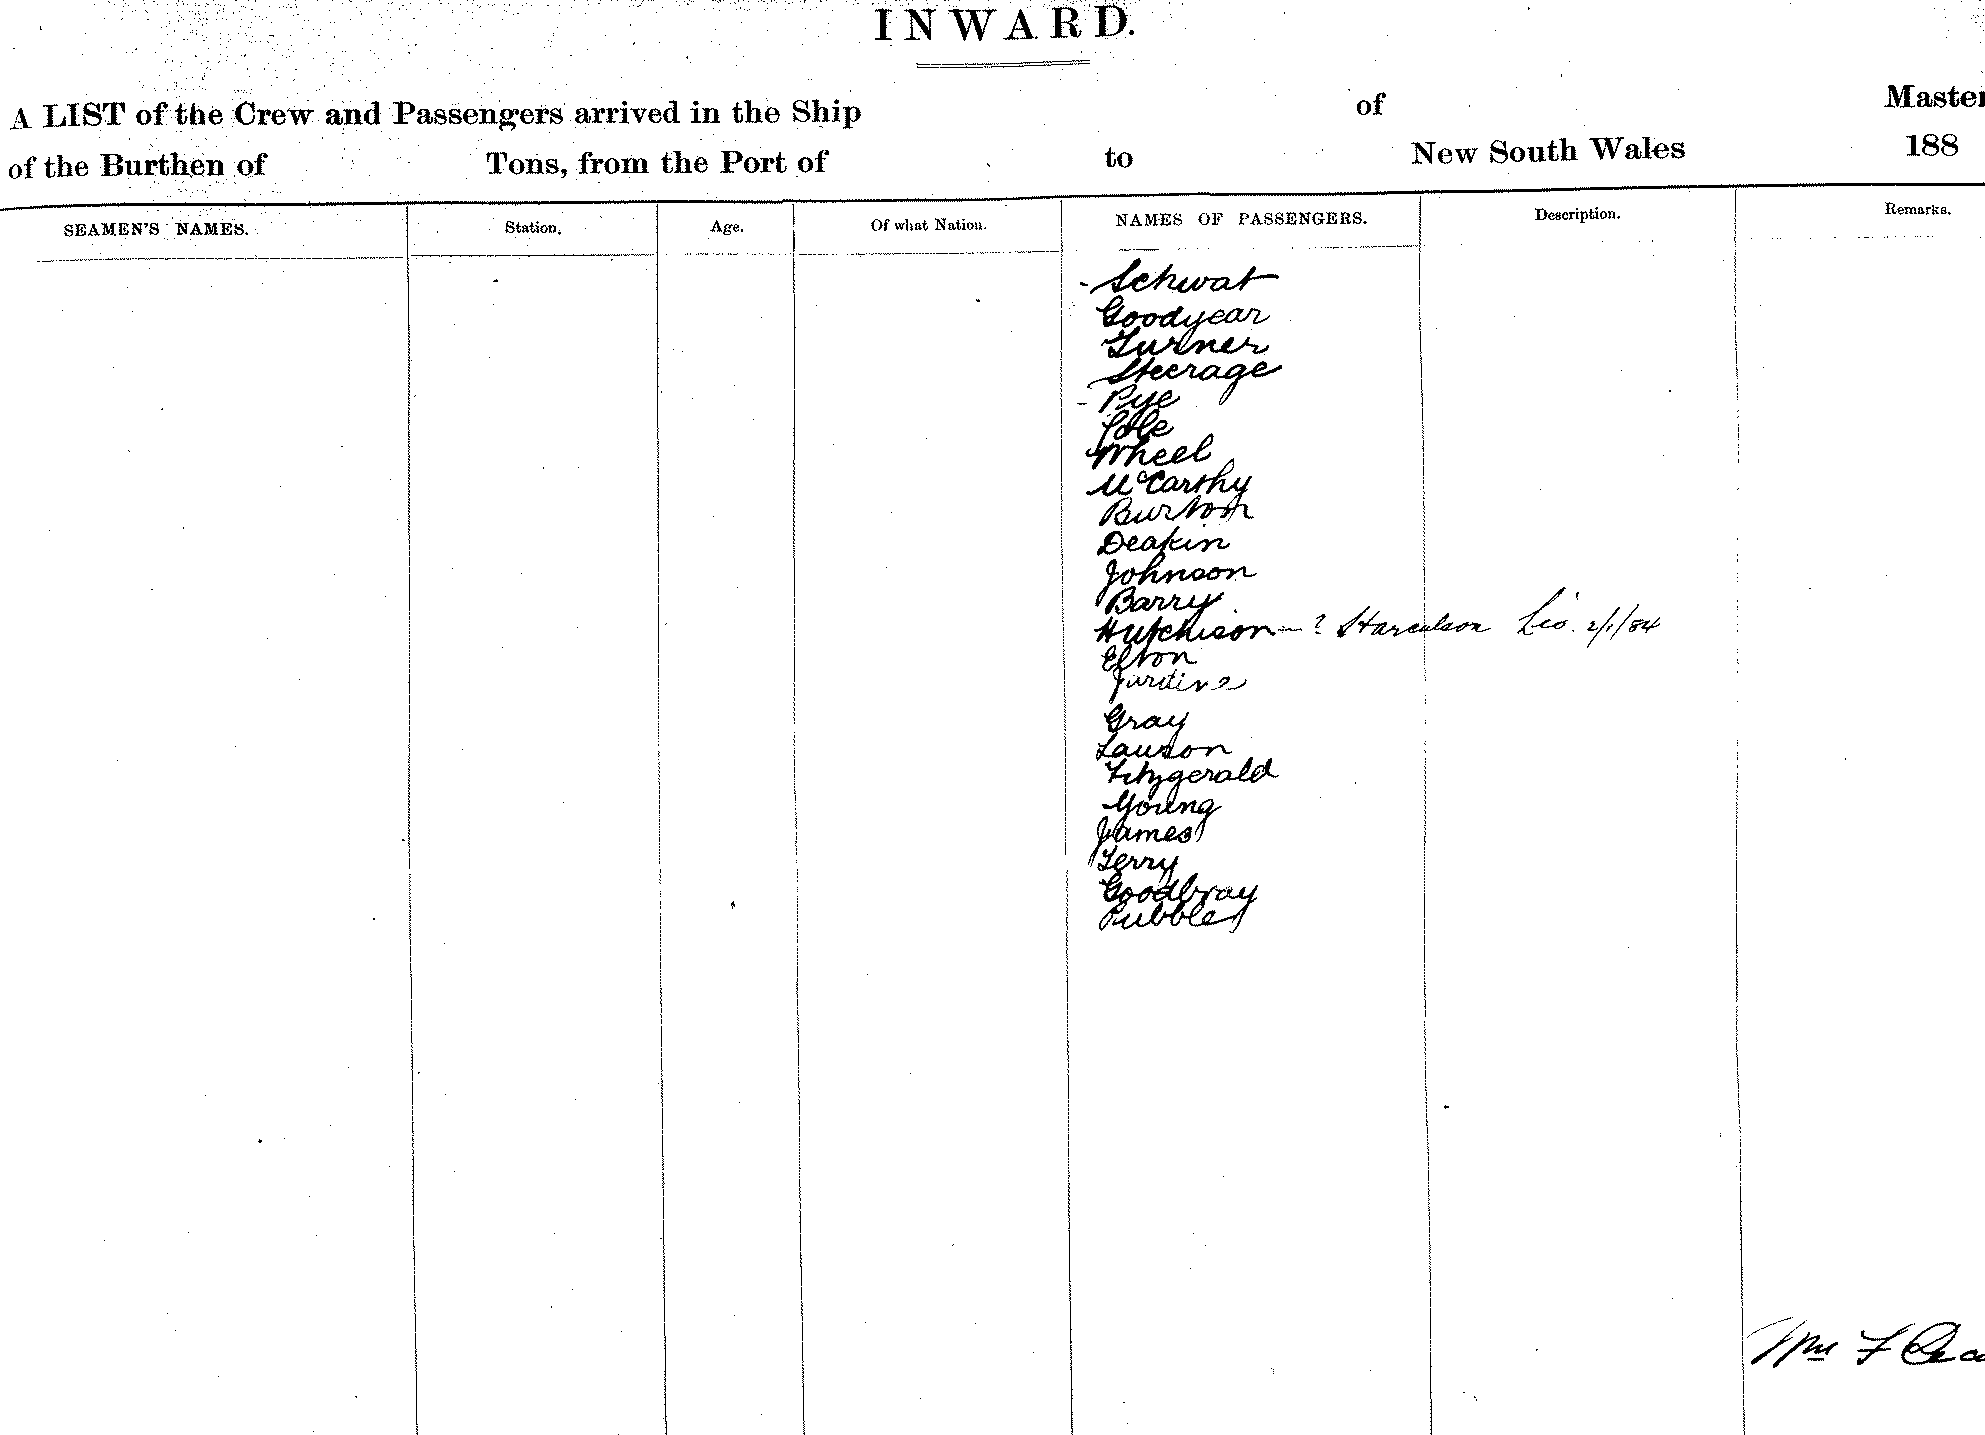 INWARD.
A LIST of the Crew and Passengers arrived in the Ship of Master
of the Burthen of Tons, from the Port of to New South Wales 188
SEAMEN'S NAMES. Station. Age. Of what Nation. NAMES OF PASSENGERS. Description. Remarks.
Schwat
Goodyear
Turner
Steerage
Pye
Cole
Wheel
McCarthy
Burton
Deakin
Johnson
Barry
Hutchison - ? 2/1/84
Elton
Jardine
Gray
Lawson
Fitzgerald
Young
James
Terry
Goodbray
Pubbles
Wm F